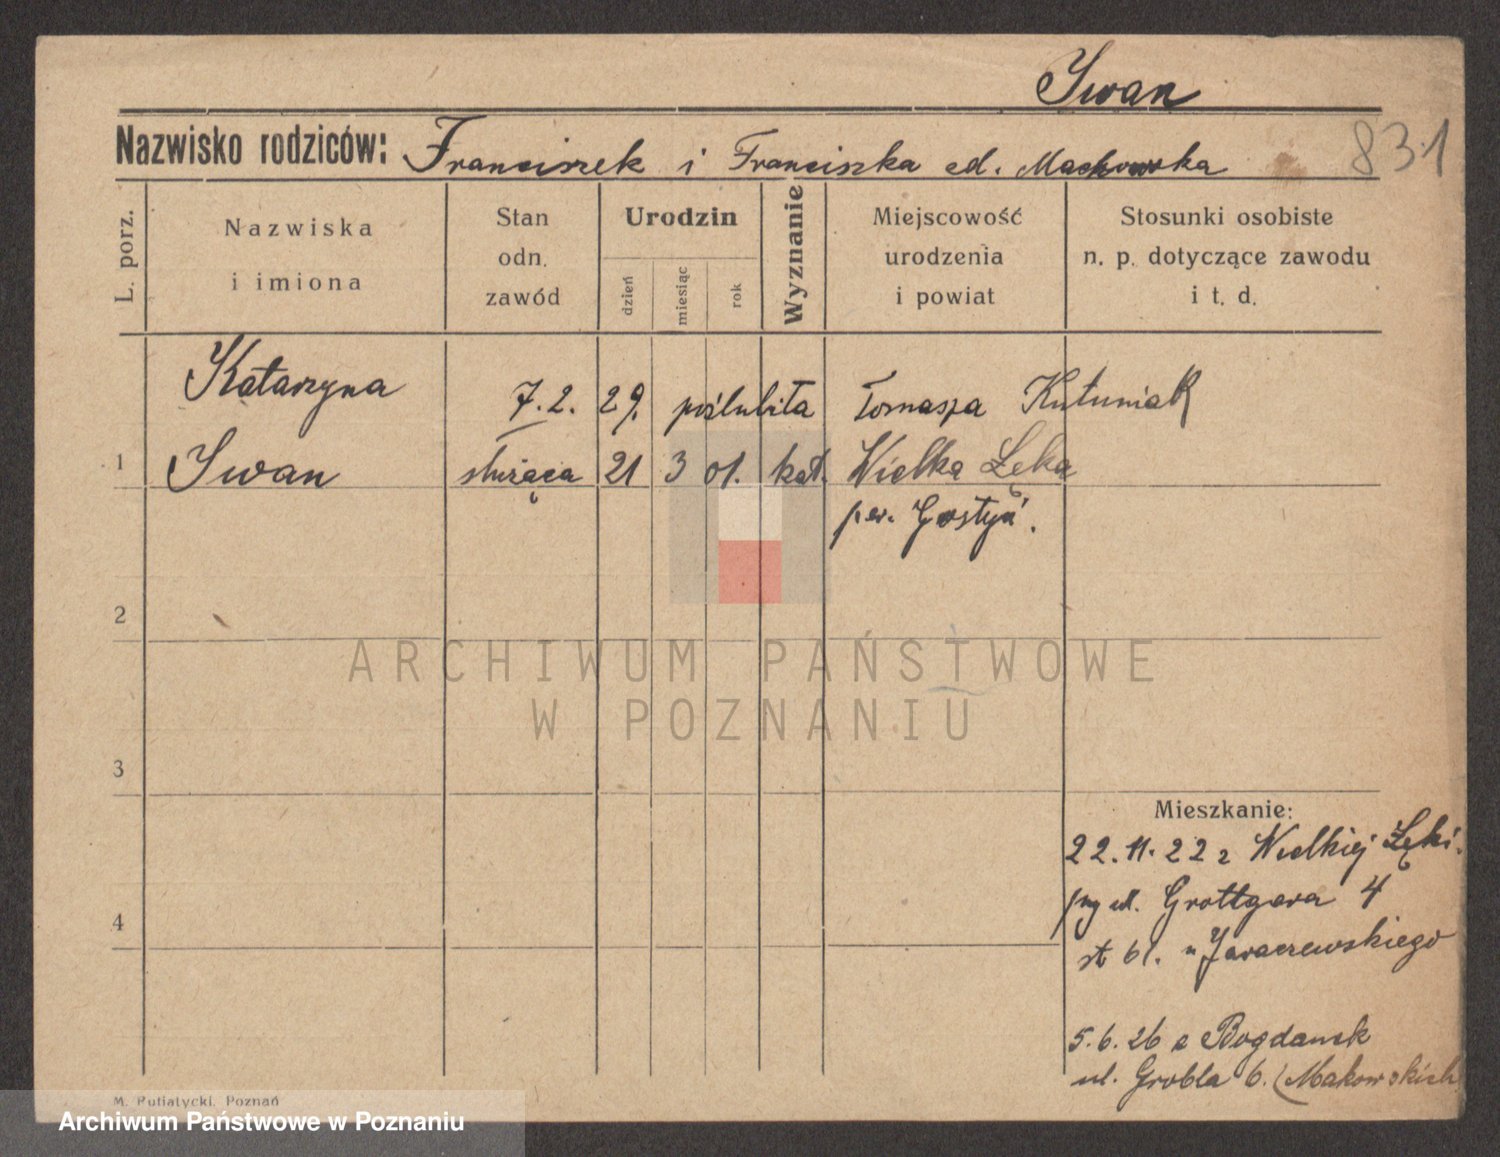 Iwan
Nazwisko rodziców: Franciszek i Franciszka Maćkowska
831
L. porz.
Nazwiska
i imiona
Stan
odn.
zawód
Urodzin
dzień
miesiąc
rok
Wyznanie
Miejscowość
urodzenia
i powiat
Stosunki osobiste
n. p. dotyczące zawodu
i t. d.
Katarzyna 7.2. 29. poślubiła Tomasza Kutuniak
1 Iwan służąca 21 3 01. kat. Wielka Łęka
pow. Gostyń.
2
3
4
Mieszkanie:
22.11.22 z Wielkiej Łęki.
Grottgera 4
u Jaraczewskiego
5.6.26 z Bogdanek
ul. Grobla 6. (Makowskich
M. Putiatycki, Poznań
ARCHIWUM PAŃSTWOWE
W POZNANIU
Archiwum Państwowe w Poznaniu